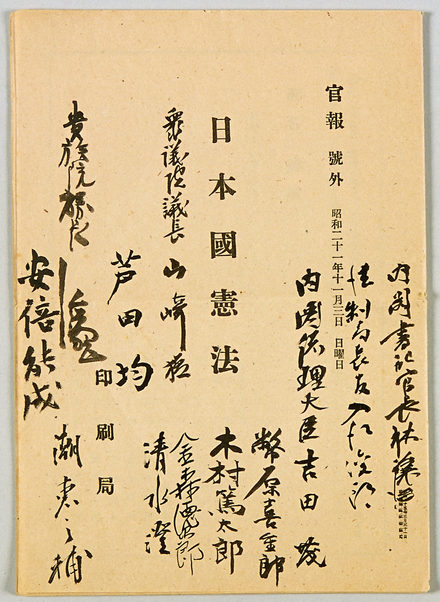 内閣書記官長 林譲治
法制局長官 入江俊郎
官報 號外 昭和二十一年十一月三日 日曜日
内閣總理大臣 吉田茂
幣原喜重郎
木村篤太郎
日本國憲法
金森德次郎
衆議院議長 山崎猛
清水澄
芦田均
印刷局
貴族院議長
潮惠之輔
安倍能成